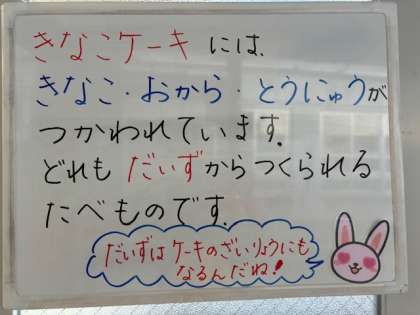 きなこケーキ には、
きなこ・おから・とうにゅうが
つかわれています。
どれも だいずからつくられる
たべものです。
だいずは ケーキのざいりょうにも
なるんだね!